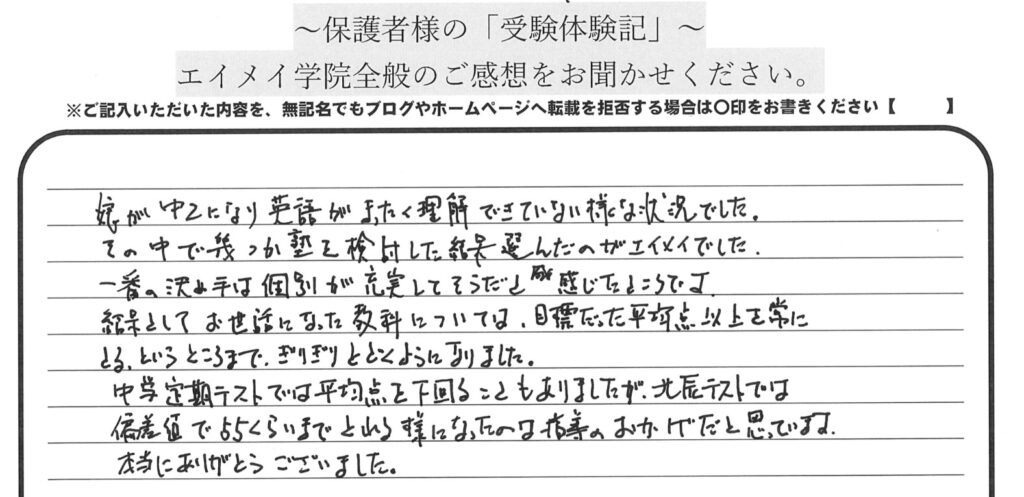 ～保護者様の「受験体験記」～
エイメイ学院全般のご感想をお聞かせください。
※ご記入いただいた内容を、無記名でもブログやホームページへ転載を拒否する場合は〇印をお書きください【　　】
娘が中2になり英語がまったく理解できていない様な状況でした。
その中で幾つか塾を検討した結果選んだのがエイメイでした.
一番の決め手は個別が充実してそうだと感じたところです.
結果としてお世話になった教科については、目標だった平均点以上を常に
とる、というところまで、ぎりぎりとどくようになりました。
中学定期テストでは平均点を下回ることもありましたが、北辰テストでは
偏差値で55くらいまでとれる様になったのは指導のおかげだと思っています.
本当にありがとうございました。